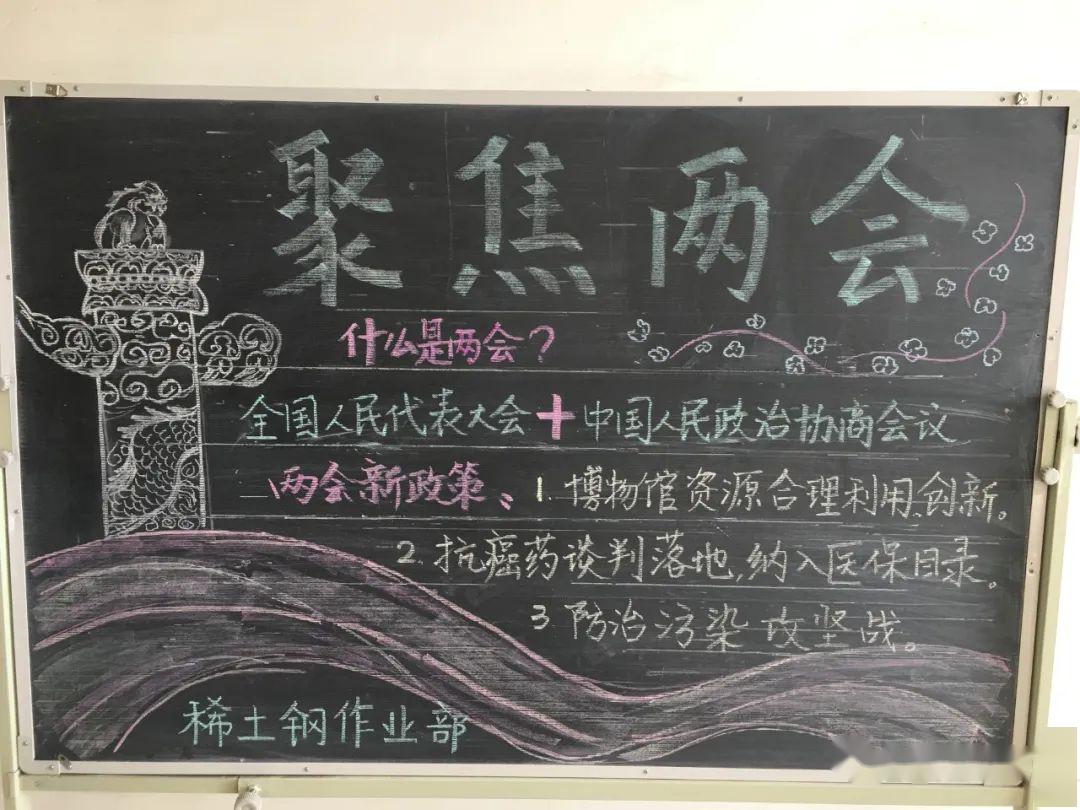 聚焦两会
什么是两会?
全国人民代表大会+中国人民政治协商会议
两会新政策:1.博物馆资源合理利用、创新。
2.抗癌药谈判落地,纳入医保目录。
3 防治污染攻坚战。
稀土钢作业部